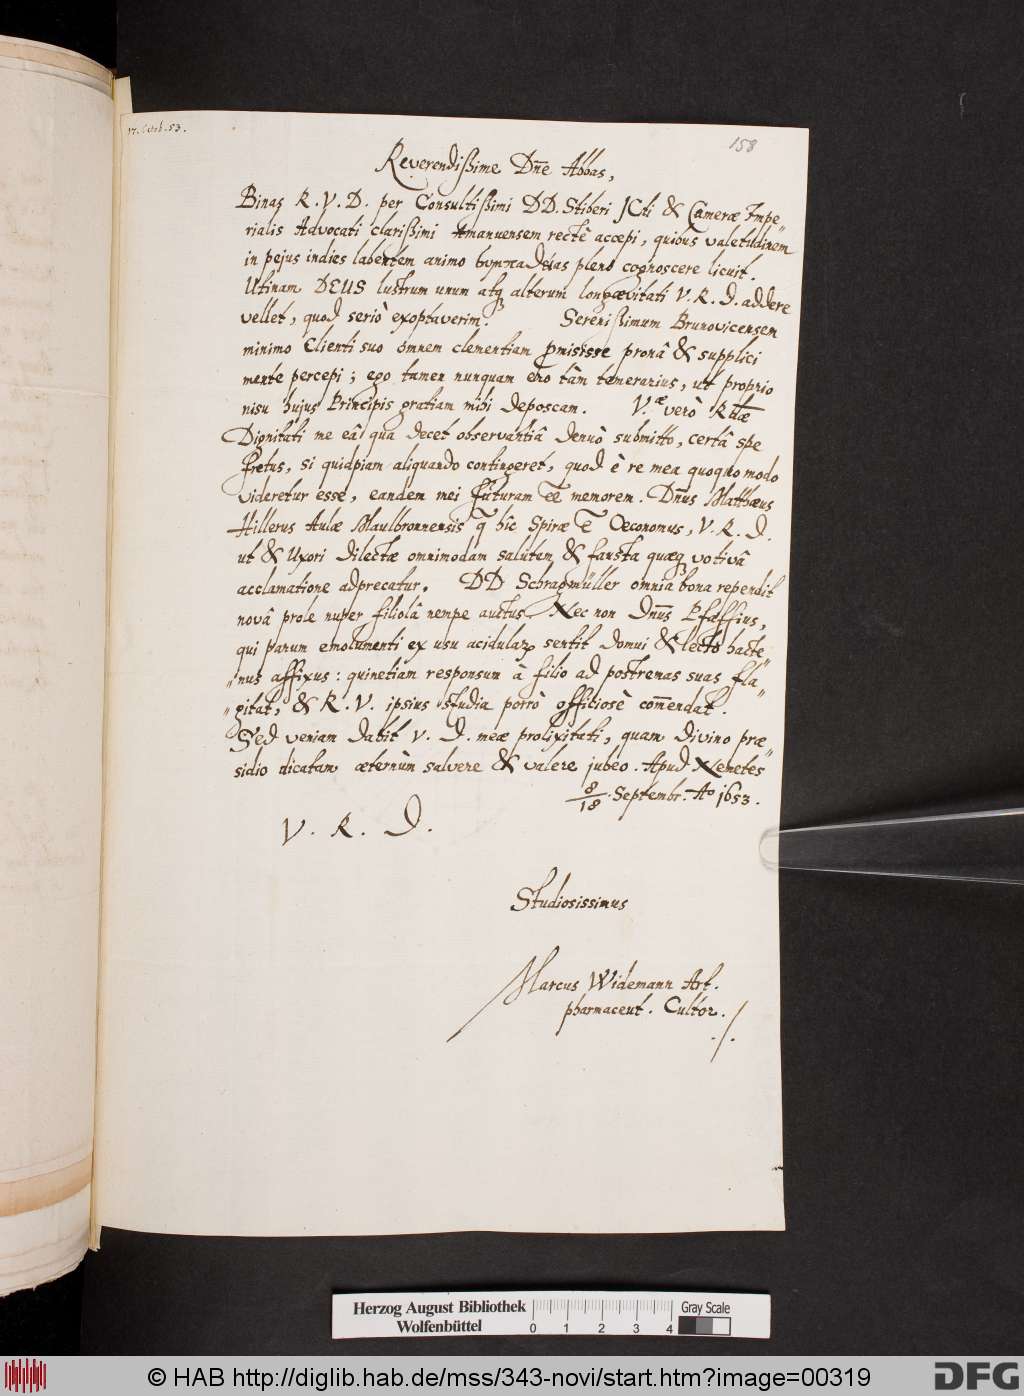 17. Octob. 53.
158
Reverendißime Dn̄e Abbas,
Binas R. V. D. per Consultißimi DD. Stiberi JCti & Cameræ Impe„
rialis Advocati clarißimi Amanuensem rectè accepi, quibus valetudinem
in pejus indies labentem animo pleno cognoscere licuit.
Utinam DEUS lustrum unum atq; alterum longævitati V. R. D. addere
vellet, quod seriò exoptaverim. Serenißimum Brunovicensem
minimo Clienti suo omnem clementiam promisisse pronâ & supplici
mente percepi; ego tamen nunquam ero tàm temerarius, ut proprio
nisu hujus Principis gratiam mihi deposcam. V.æ verò R.dæ
Dignitati me eâ qua decet observantiâ denuò submitto, certâ spe
fretus, si quidpiam aliquando contingeret, quod è re mea quoquo modo
videretur esse, eandem mei futuram ee memorem. Dn̄us Matthæus
Hillerus Aulæ Maulbronnensis q̄ hîc Spiræ ē Œconomus, V. R. D.
ut & Uxori dilectæ omnimodam salutem & fausta quæq; votivâ
acclamatione adprecatur. DD Schragmüller omnia bona rependit
novâ prole nuper filiolâ nempe auctus. Nec non Dn̄us Pfaffius,
qui parum emolumenti ex usu acidular. sentit domui & lecto hacte„
„nus affixus: quinetiam responsum à filio ad postremas suas fla„
„gitat, & R. V. ipsius studia porrò officiosè com̄endat.
Sed veniam dabit V. D. meæ prolixitati, quam divino præ„
sidio dicatam æternùm salvere & valere jubeo. Apud Nemetes
8/18. Septembr. Ao 1653.
V. R. D.
Studiosissimus
Marcus Widemann Art.
pharmaceut. Cultor. ./.
Herzog August Bibliothek
Wolfenbüttel
0 1 2 3 4
Gray Scale
© HAB http://diglib.hab.de/mss/343-novi/start.htm?image=00319
DFG